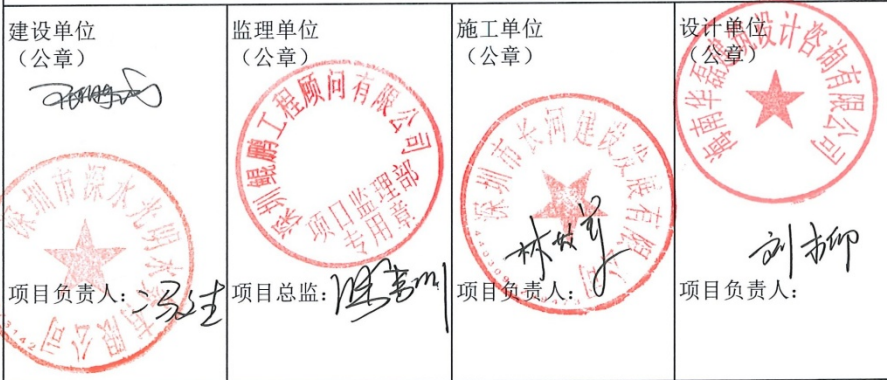 建设单位
（公章）
深圳市深水光明水务有限公司
项目负责人：
监理单位
（公章）
深圳鲲鹏工程顾问有限公司
项目监理部
专用章
项目总监：
施工单位
（公章）
深圳市长河建设发展有限公司
项目负责人：
设计单位
（公章）
海南华磊建筑设计咨询有限公司
项目负责人：